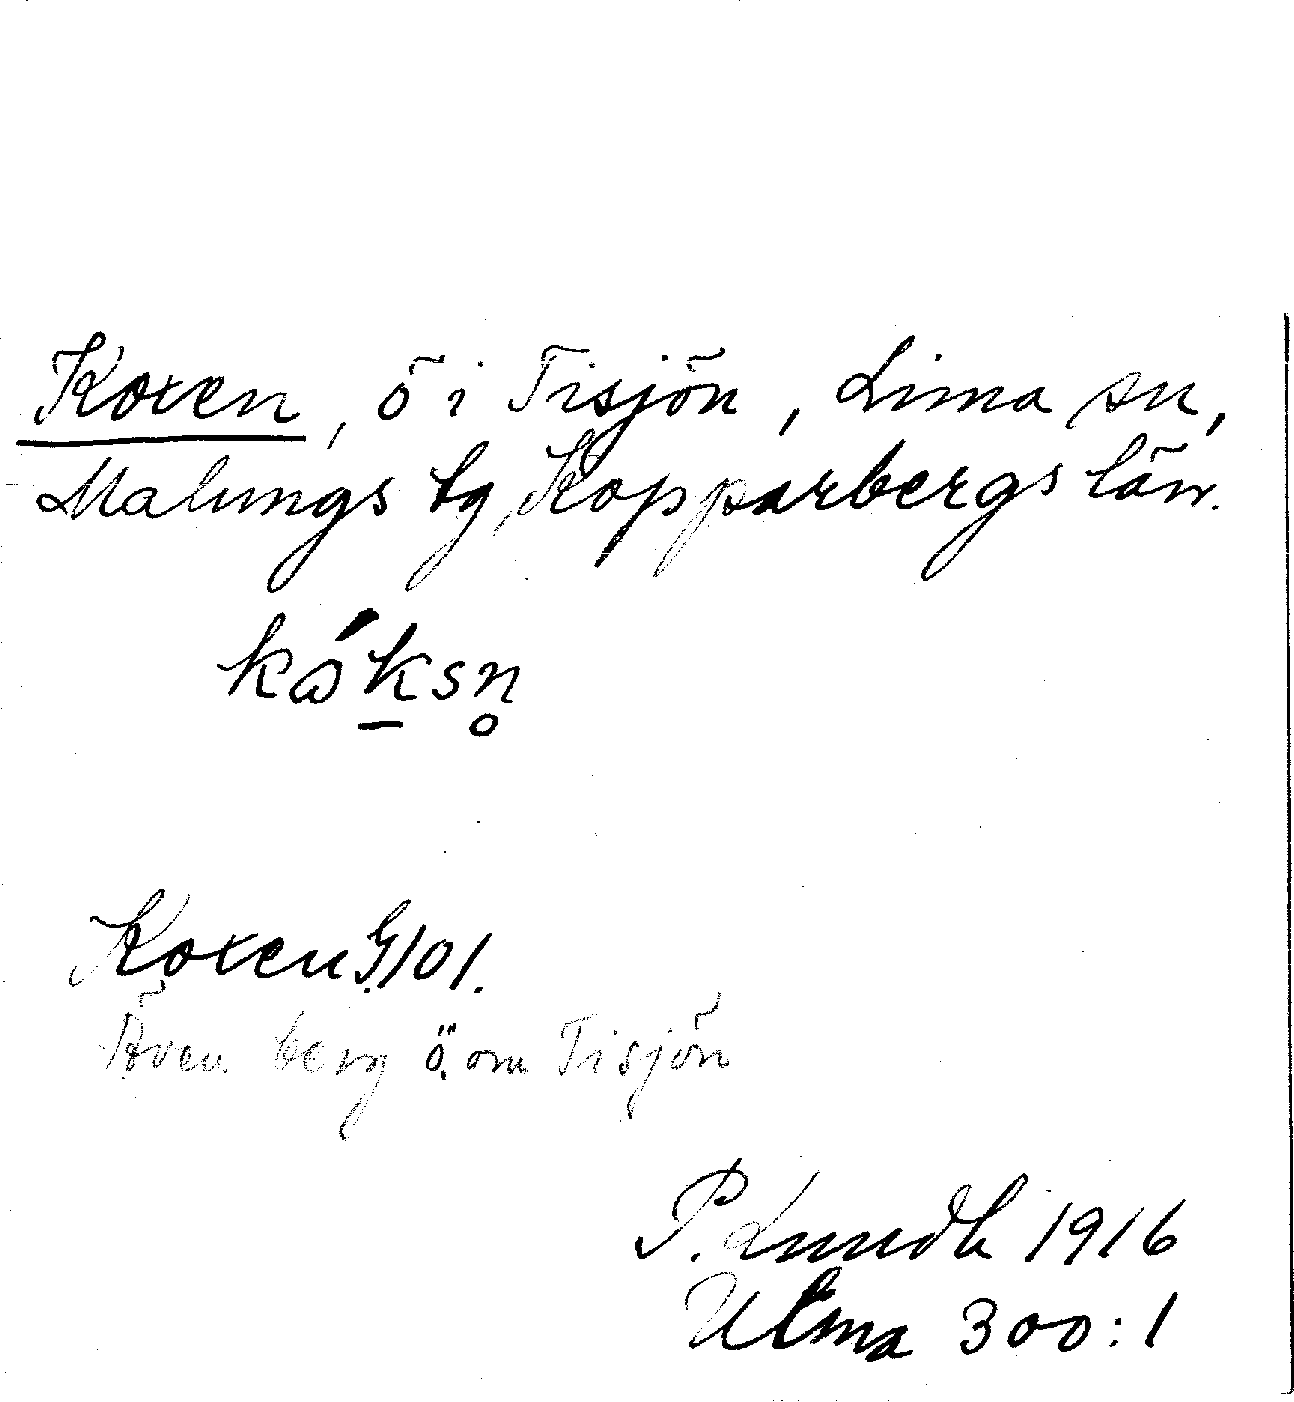 Koxen, ö i Tisjön, Lima sn,
Malungs tg, Kopparbergs län.
kåksn̥
Koxen G. 101.
Även berg ö. om Tisjön
P. Lundh 1916
Ulma 300:1